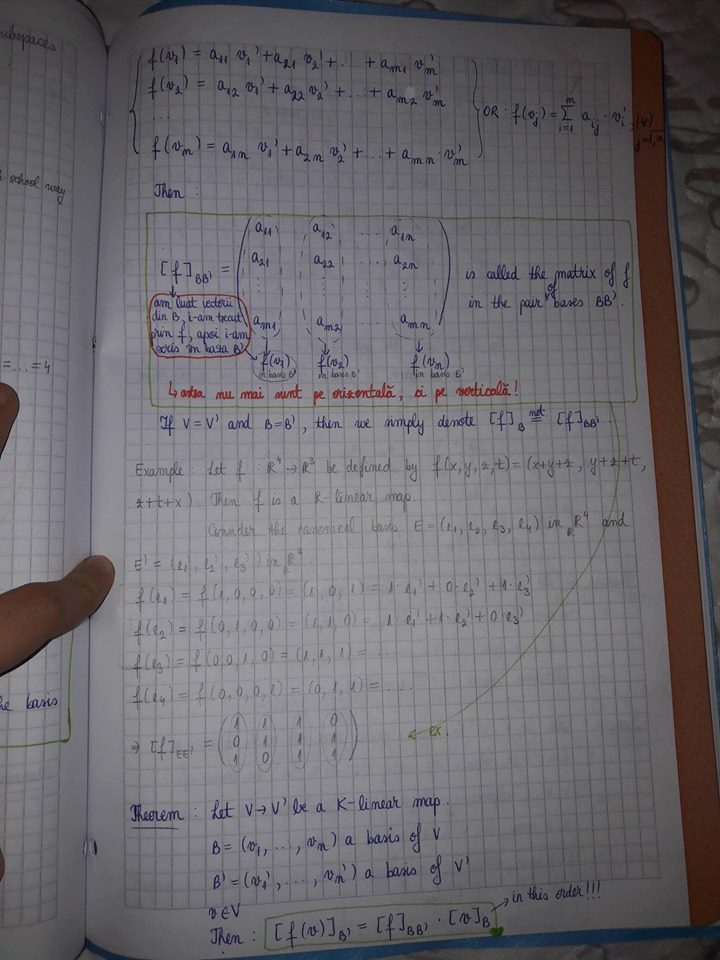 ubspaces
f(v₁) = a₁₁ v₁' + a₂₁ v₂' + ... + aₘ₁ vₘ'
f(v₂) = a₁₂ v₁' + a₂₂ v₂' + ... + aₘ₂ vₘ'
...
f(vₘ) = a₁ₙ v₁' + a₂ₙ v₂' + ... + aₘₙ · vₘ'
OR: f(vⱼ) = Σᵢ₌₁ᵐ aᵢⱼ · vᵢ', (∀) j=1,n
school way
Then :
a₁₁ a₁₂ ... a₁ₙ
a₂₁ a₂₂ ... a₂ₙ
[f]BB' =
is called the matrix of f
in the pair of bases BB'.
aₘ₁ aₘ₂ aₘₙ
am luat vectorii
din B, i-am trecut
prin f, apoi i-am
scris în baza B'
f(v₁) f(v₂) f(vₙ)
in basis B' in basis B' in basis B'
= ... = 4
↳ astea nu mai sunt pe orizontală, ci pe verticală!
If V = V' and B = B', then we simply denote [f]B not= [f]BB'.
Example: Let f : ℝ⁴ → ℝ³ be defined by f(x,y,z,t) = (x+y+z, y+z+t,
z+t+x). Then f is a K-linear map.
Consider the canonical basis E = (e₁, e₂, e₃, e₄) in ℝℝ⁴ and
E' = (e₁', e₂', e₃') in ℝℝ³.
f(e₁) = f(1,0,0,0) = (1,0,1) = 1·e₁' + 0·e₂' + 1·e₃'
f(e₂) = f(0,1,0,0) = (1,1,0) = 1·e₁' + 1·e₂' + 0·e₃'
f(e₃) = f(0,0,1,0) = (1,1,1) = ...
f(e₄) = f(0,0,0,1) = (0,1,1) = ...
he basis
1 1 1 0
⇒ [f]EE' = 0 1 1 1
1 0 1 1
ex.
Theorem : Let V → V' be a K-linear map.
B = (v₁, ..., vₙ) a basis of V
B' = (v₁', ..., vₙ') a basis of V'
v ∈ V
in this order!!!
Then : [f(v)]B' = [f]BB' · [v]B